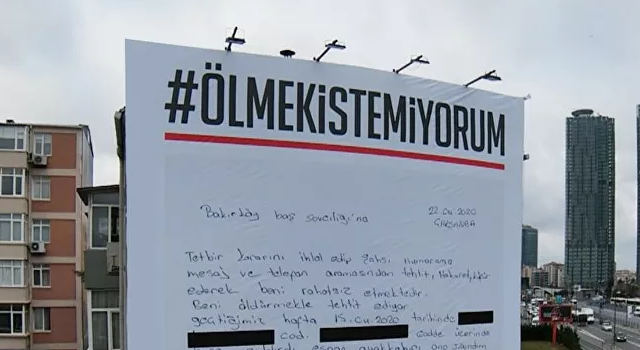 #ÖLMEKİSTEMİYORUM
Bakırköy baş savcılığı'na
22.04.2020
ÇARŞAMBA
Tetbir kararını ihlal edip şahsi numarama
mesaj ve telefon aramasından tehtit, Hakaret, küfür
ederek beni rahatsız etmektedir.
Beni öldürmekle tehtit ediyor
geçtiğimiz hafta 15.04.2020 tarihinde
cad. cadde üzerinde